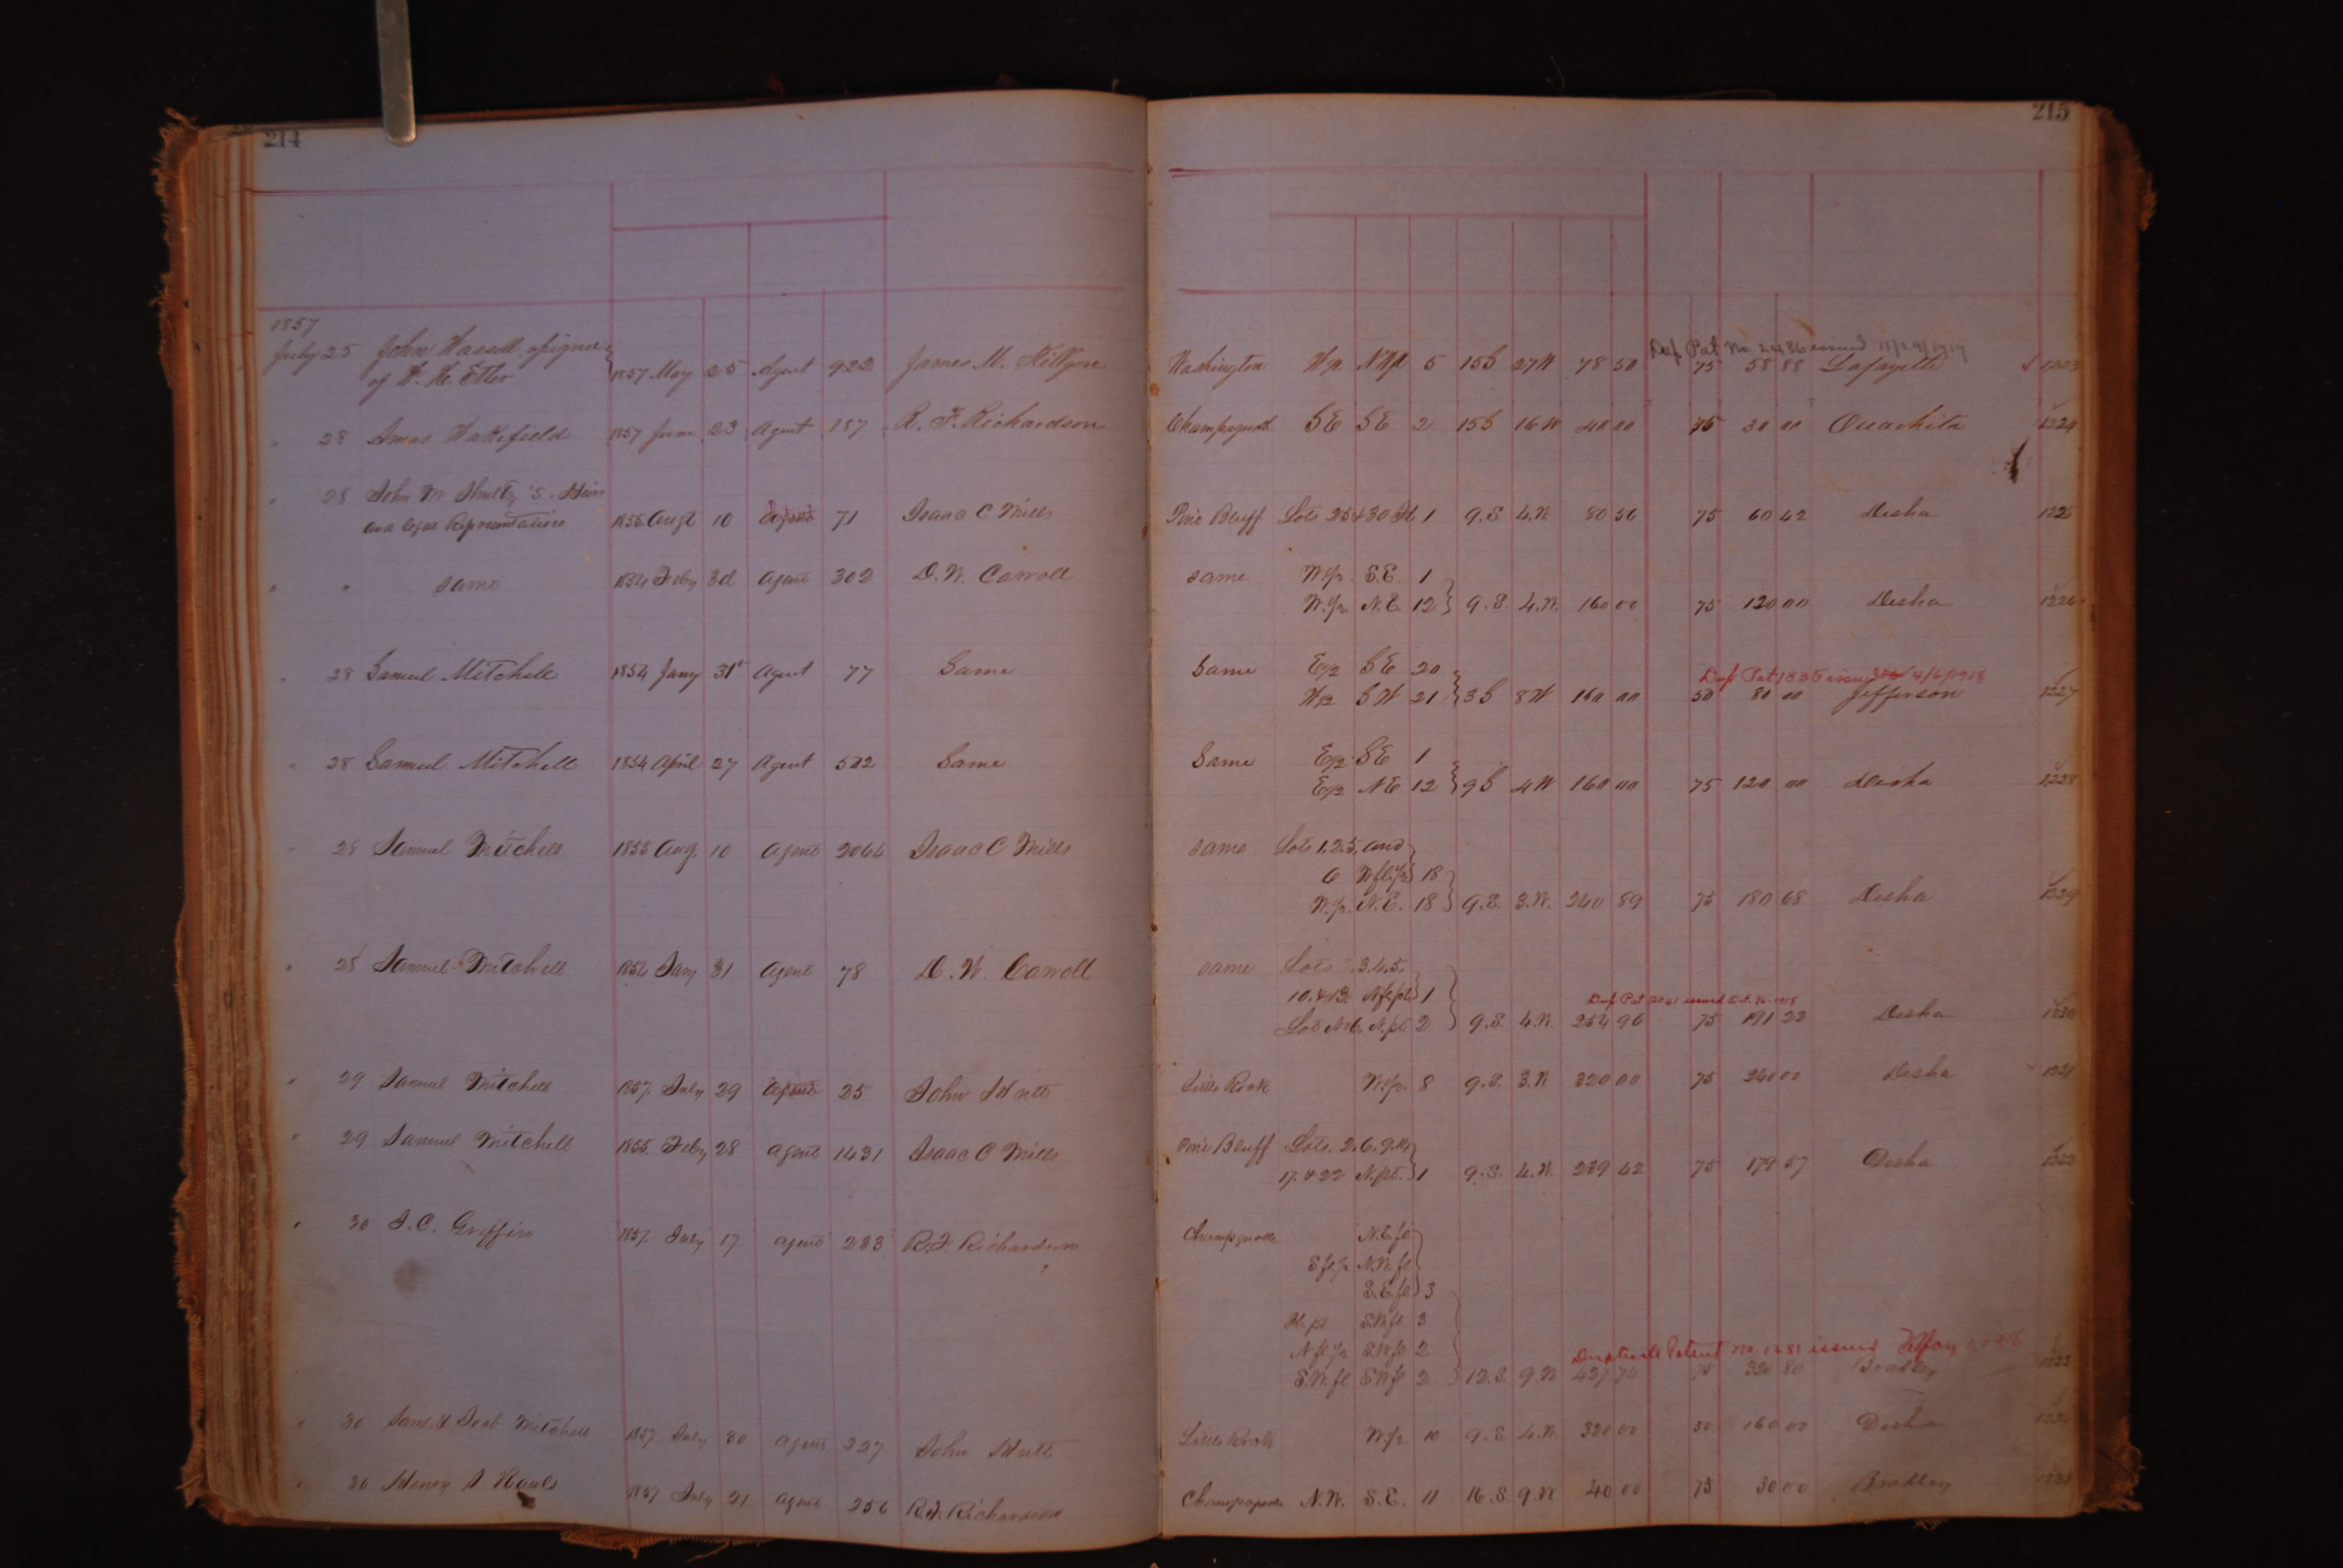 214
215
1857
July 25 John Hassell assignee
of W. H. Etter 1857 May 25 Agent 922 James M. Killgore Washington W½ NW 5 15S 27W 78 50 75 58 88 Lafayette 1223
Dup Pat No. 2486 issued 11/29/1919
" 28 Amos Wakefield 1857 June 23 Agent 187 R. F. Richardson Champagnolle SE SE 2 15S 16W 40 00 75 30 00 Ouachita 1224
" 28 John W Shultz's Heirs
and legal Representatives 1855 Augt 10 Agent 71 Isaac C Mills Pine Bluff Lots 25 & 30 1 9.S. 4.W. 80 56 75 60 42 Desha 1225
" " same 1854 Feby 3d agent 302 D. W. Carroll same W.½ S.E. 1
W.½ N.E. 12 9.S. 4.W. 160 00 75 120 00 Desha 1226
" 28 Samuel Mitchell 1854 Jany 31st Agent 77 Same Same E½ SE 20
W½ SW 21 3S 8W 160 00 50 80 00 Jefferson 1227
Dup Pat 1835 issued 4/6/1918
" 28 Samuel Mitchell 1854 April 27 Agent 582 Same Same E½ SE 1
E½ NE 12 9S 4W 160 00 75 120 00 Desha 1228
" 28 Samuel Mitchell 1855 Aug. 10 Agent 2064 Isaac C Mills same Lots 1.2.5. and
6 W fl ½ 18
W.½ N.E. 18 9.S. 3.W. 240 89 75 180 68 Desha 1229
" 28 Samuel Mitchell 1854 Jany 31 Agent 78 D. W. Carroll same Lots 3.4.5.
10. & 13 N fl pt 1
Lot No 6. N.pt 2 9.S. 4.W. 254 96 75 191 22 Desha 1230
Dup Pat issued Oct. 16-1918
" 29 Samuel Mitchell 1857. July 29 Agent 25 John Hutt Little Rock W.½ 8 9.S. 3.W. 320 00 75 240 00 Desha 1231
" 29 Samuel Mitchell 1855. Feby 28 agent 1431 Isaac C Mills Pine Bluff Lots. 2.6.9.14
17. & 22 N.pt. 1 9.S. 4.W. 239 42 75 179 57 Desha 1232
" 30 J. C. Griffin 1857. July 17 agent 233 R. F. Richardson Champagnolle N.E. fl
S fl ½ N.W. fl
S.E. fl 3
fl. pt S.W. fl 3
N fl ½ S.W. fl 2
S.W. fl SW fl 2 12.S. 9.W 427 74 75 320 80 Bradley 1233
Duplicate Patent No. 1281 issued 1916
" 30 Saml & Joab Mitchell 1857 July 30 agent 227 John Hutt Little Rock W½ 10 9.S. 4.W. 320 00 50 160 00 Desha 1234
" 30 Henry A Rauls 1857 July 21 agent 256 R. F. Richardson Champagnolle N.W. S.E. 11 16.S. 9.W 40 00 75 30 00 Bradley 1235